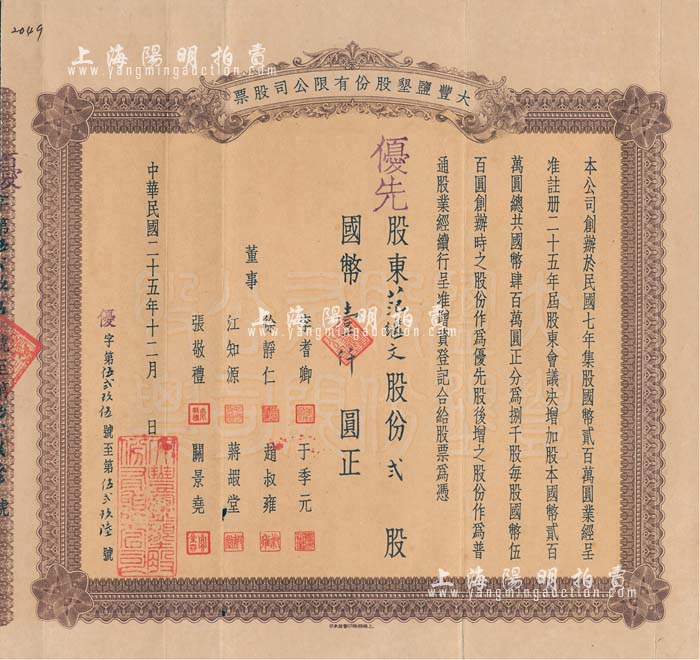 2049
上海陽明拍賣
www.yangmingauction.com
大豐鹽墾股份有限公司股票
本公司創辦於民國七年集股國幣貳百萬圓業經呈
准註册二十五年屆股東會議決增加股本國幣貳百
萬圓總共國幣肆百萬圓正分爲捌千股每股國幣伍
百圓創辦時之股份作爲優先股後增之股份作爲普
通股業經續行呈准增資登記合給股票爲憑
優先
股東范文股份弍股
國幣壹仟圓正
董事
耆卿 于季元
徐靜仁 趙叔雍
江知源 蔣嘏堂
張敬禮 關景堯
中華民國二十五年十二月 日
優字第伍弍玖伍號至第伍弍玖陸號
上海陽明拍賣
www.yangmingauction.com